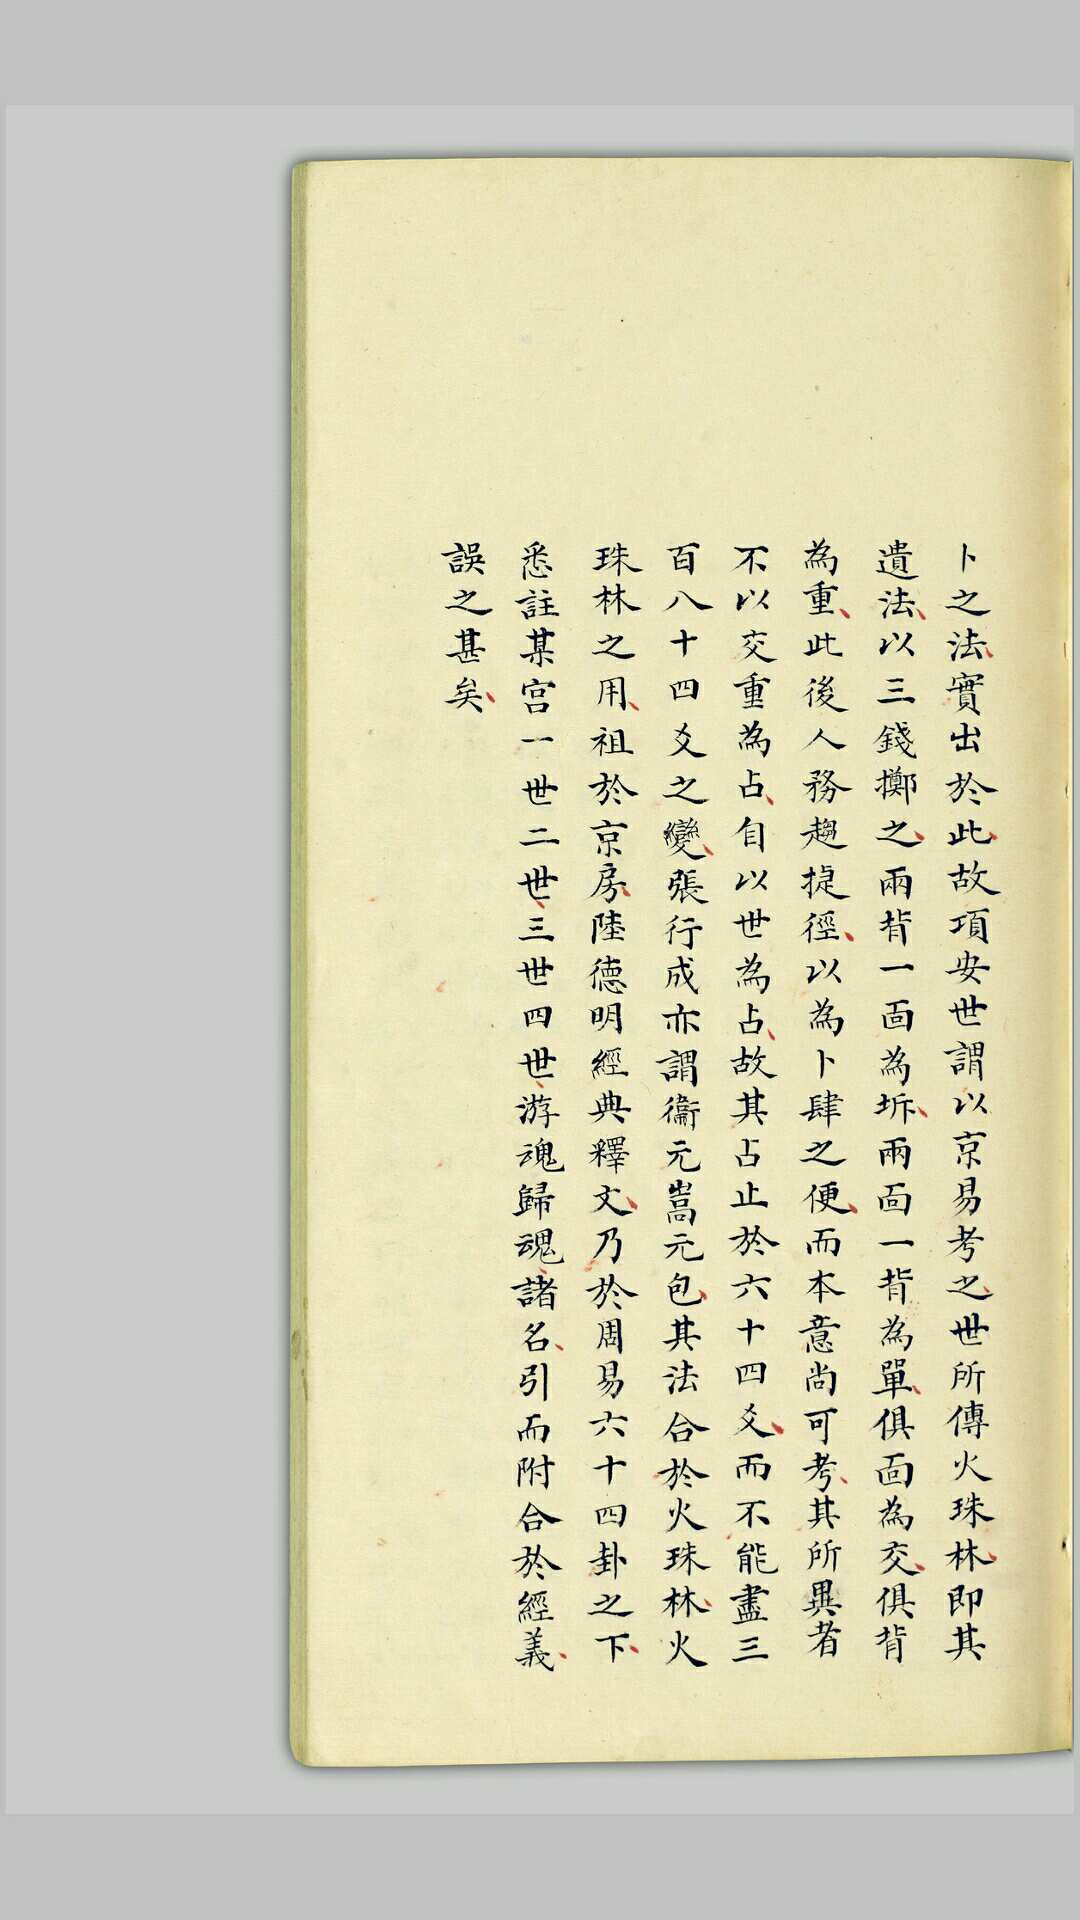 卜之法實出於此故項安世謂以京易考之世所傳火珠林即其
遺法以三錢擲之兩背一面為坼兩面一背為單俱面為交俱背
為重此後人務趨捷徑以為卜肆之便而本意尚可考其所異者
不以交重為占自以世為占故其占止於六十四爻而不能盡三
百八十四爻之變張行成亦謂衞元嵩元包其法合於火珠林火
珠林之用祖於京房陸德明經典釋文乃於周易六十四卦之下
悉註某宮一世二世三世四世游魂歸魂諸名引而附合於經義
誤之甚矣